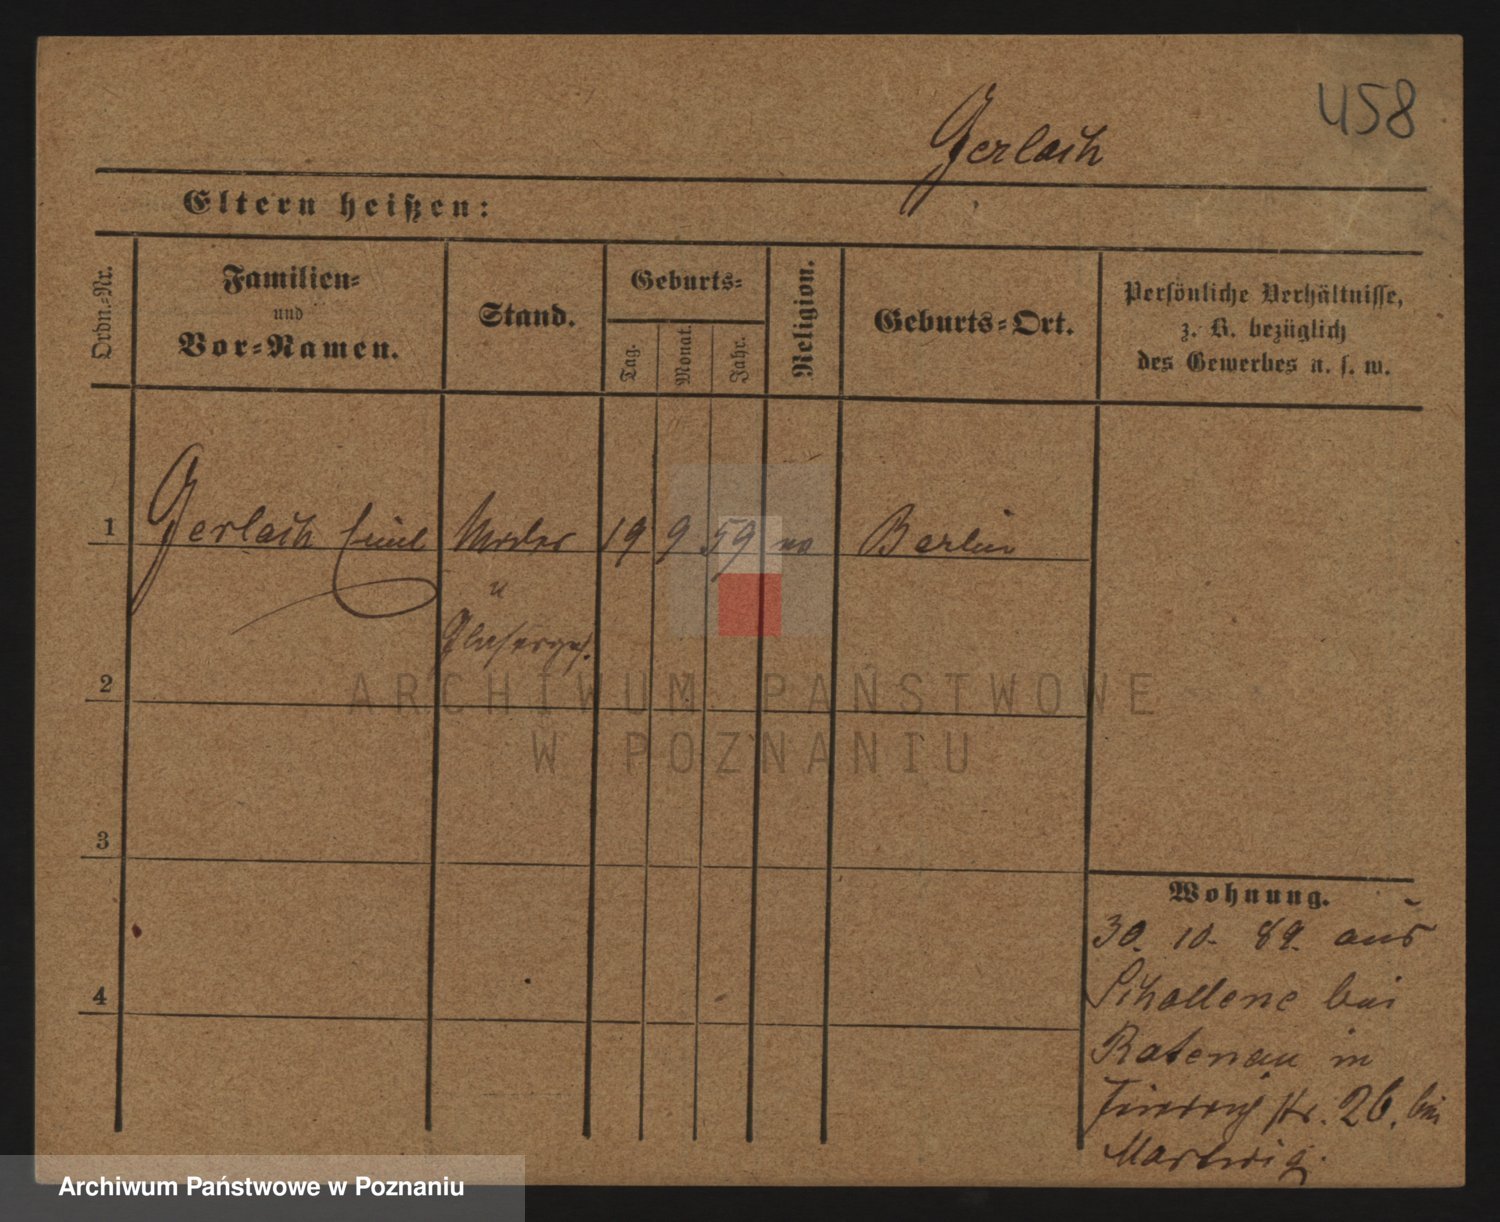 458
Gerlach
Eltern heißen:
Ordn.-Nr.
Familien-
und
Vor-Namen.
Stand.
Geburts-
Tag.
Monat.
Jahr.
Religion.
Geburts-Ort.
Persönliche Verhältnisse,
z. B. bezüglich
des Gewerbes u. s. w.
1 Gerlach Emil Maler 19 9 59 Berlin
u
Glaserges.
2
ARCHIWUM PAŃSTWOWE
W POZNANIU
3
Wohnung.
30. 10. 89. aus
4
Schollene bei
Ratenau in
str. 26. bei
Martwig.
Archiwum Państwowe w Poznaniu